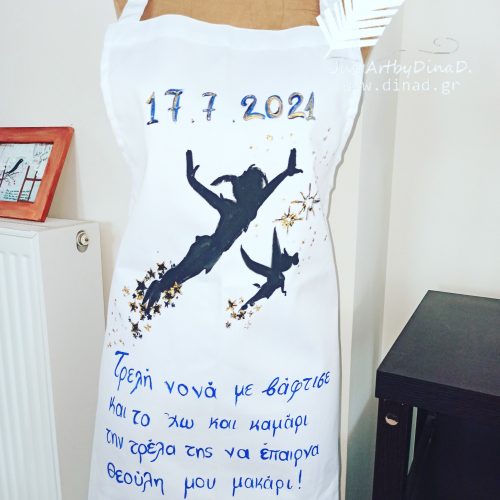 Just ArtbyDinaD.
www.dinad.gr
17.7.2021
Τρελή νονά με βάφτισε
και το 'χω και καμάρι
την τρέλα της να έπαιρνα
Θεούλη μου μακάρι!